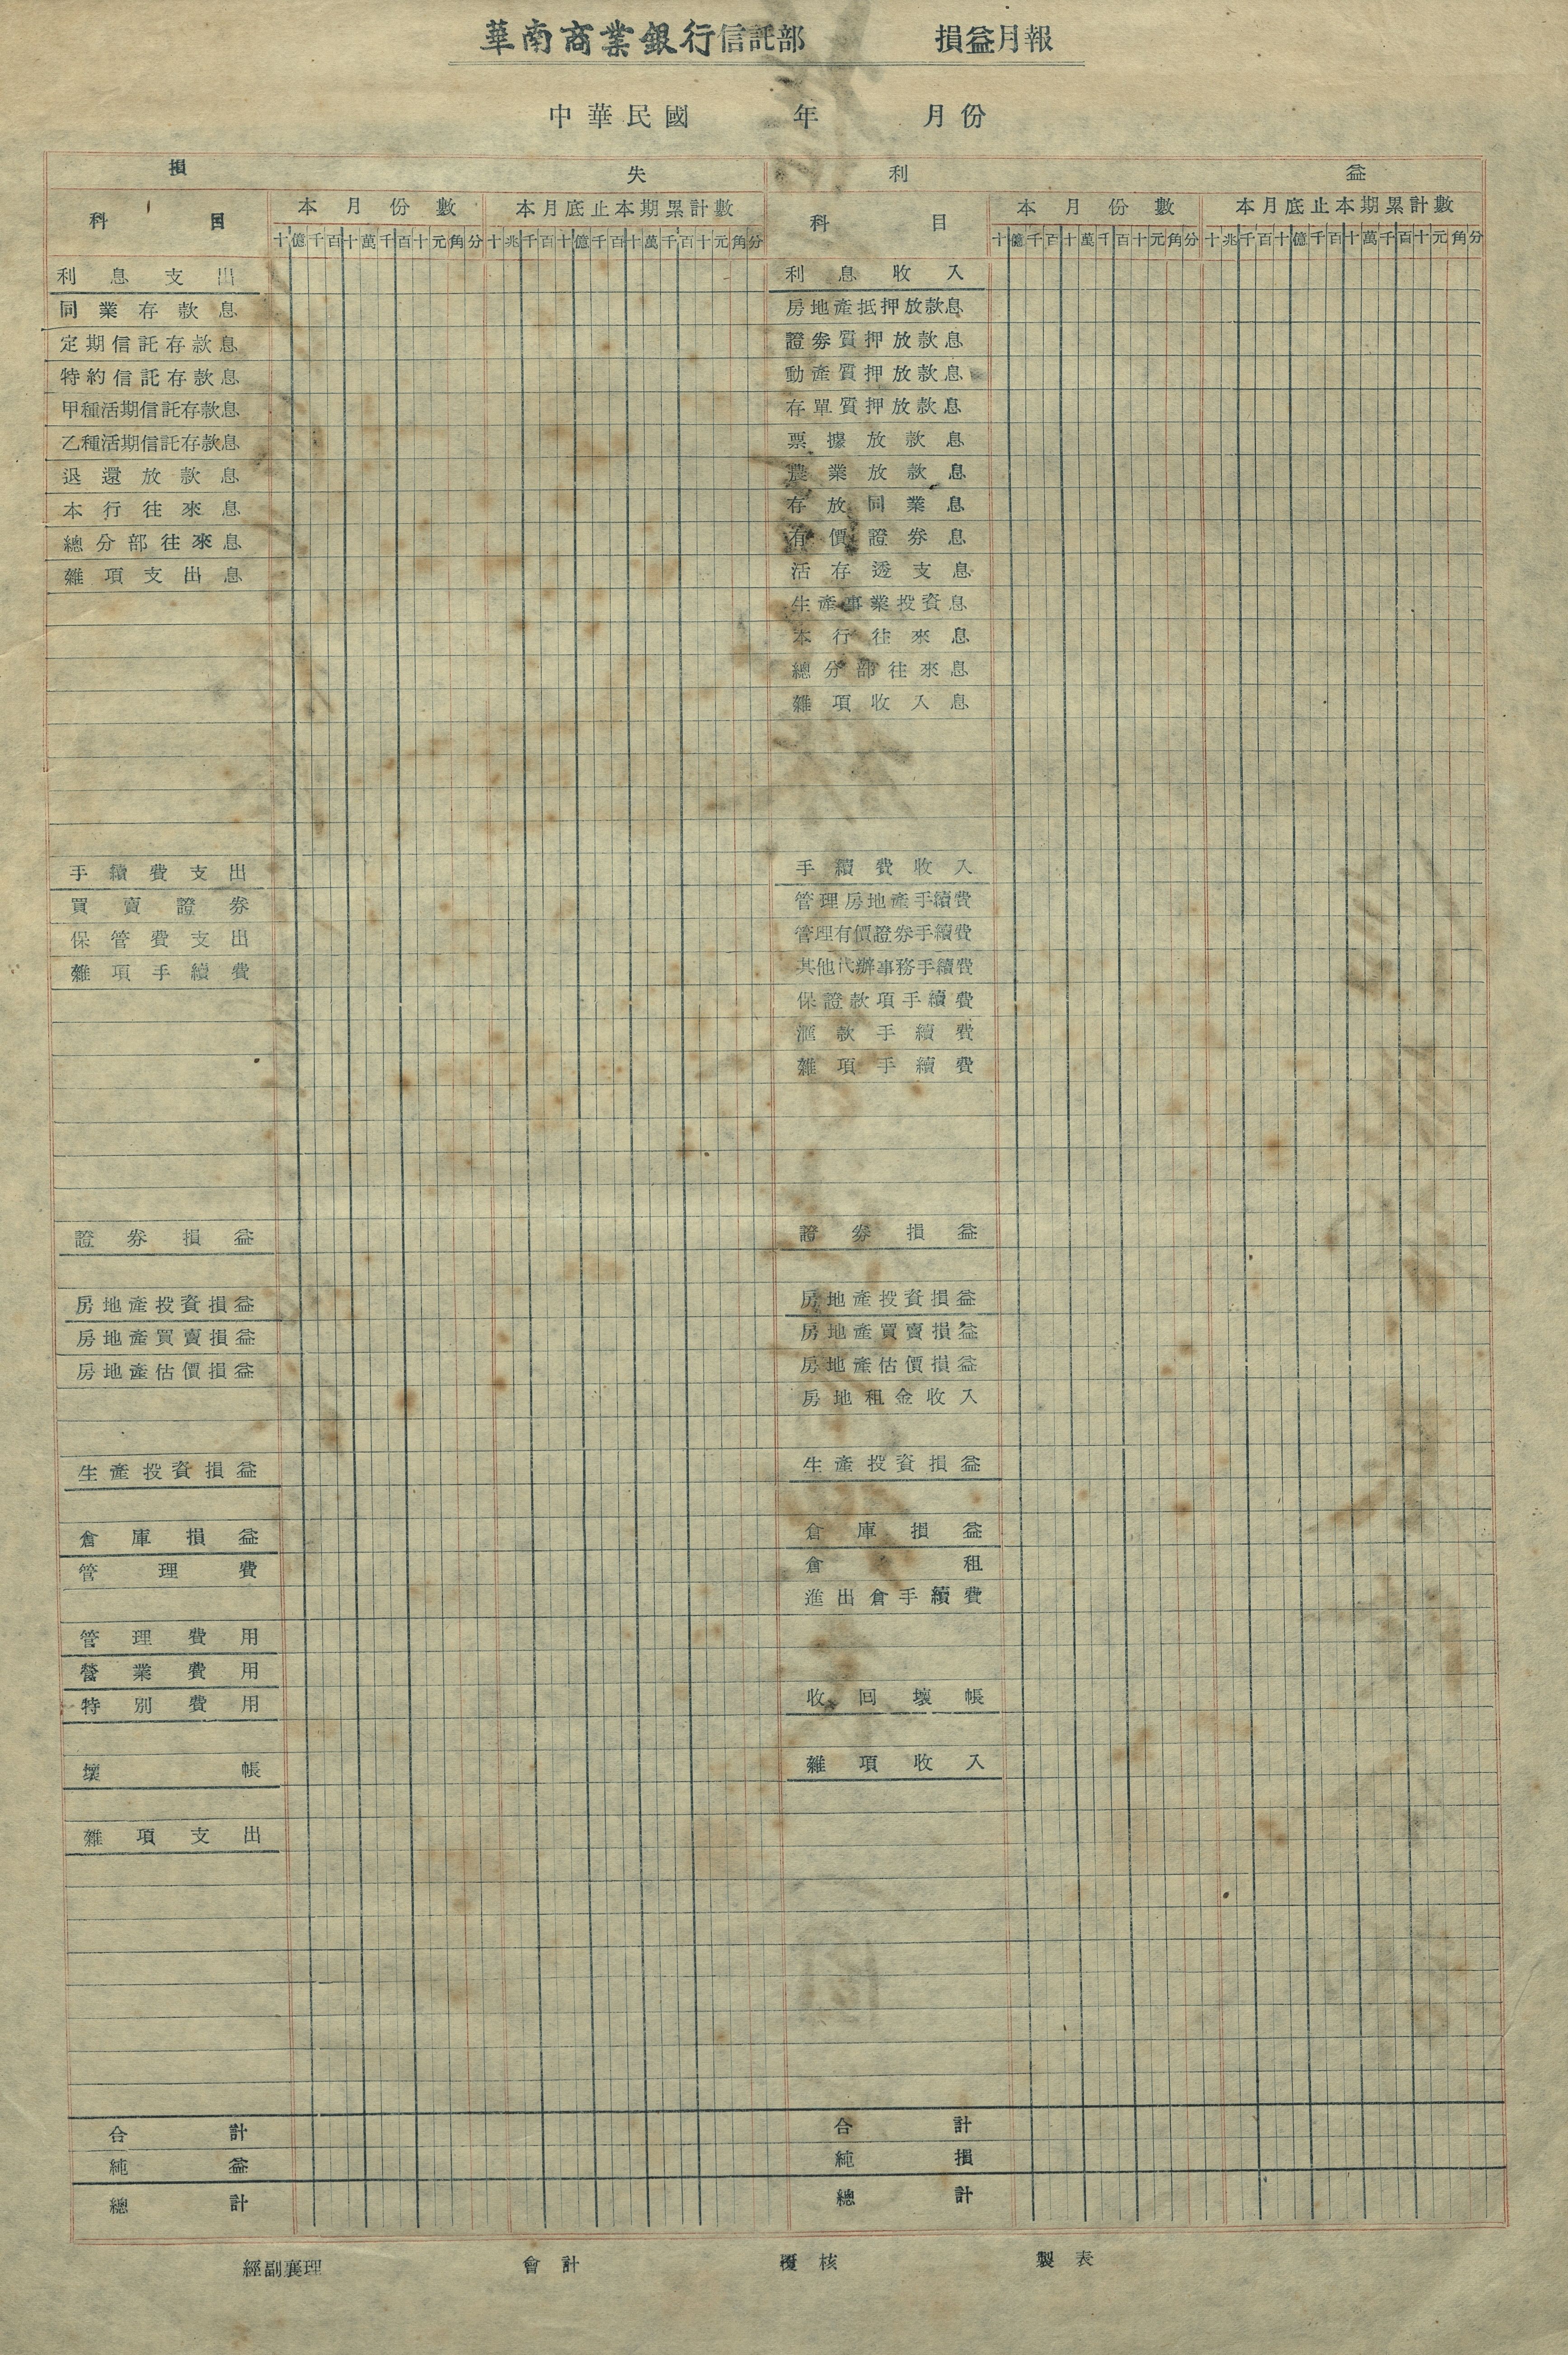 華南商業銀行信託部 損益月報
中華民國 年 月份
損 失 利 益
科 目 本月份數 本月底止本期累計數 科 目 本月份數 本月底止本期累計數
十億千百十萬千百十元角分 十兆千百十億千百十萬千百十元角分 十億千百十萬千百十元角分 十兆千百十億千百十萬千百十元角分
利息支出 利息收入
同業存款息 房地產抵押放款息
定期信託存款息 證券質押放款息
特約信託存款息 動產質押放款息
甲種活期信託存款息 存單質押放款息
乙種活期信託存款息 票據放款息
退還放款息 農業放款息
本行往來息 存放同業息
總分部往來息 有價證券息
雜項支出息 活存透支息
生產事業投資息
本行往來息
總分部往來息
雜項收入息
手續費支出 手續費收入
買賣證券 管理房地產手續費
保管費支出 管理有價證券手續費
雜項手續費 其他代辦事務手續費
保證款項手續費
滙款手續費
雜項手續費
證券損益 證券損益
房地產投資損益 房地產投資損益
房地產買賣損益 房地產買賣損益
房地產估價損益 房地產估價損益
房地租金收入
生產投資損益 生產投資損益
倉庫損益 倉庫損益
管理費 倉租
進出倉手續費
管理費用
營業費用
特別費用 收回壞帳
壞帳 雜項收入
雜項支出
合計 合計
純益 純損
總計 總計
經副襄理 會計 覆核 製表